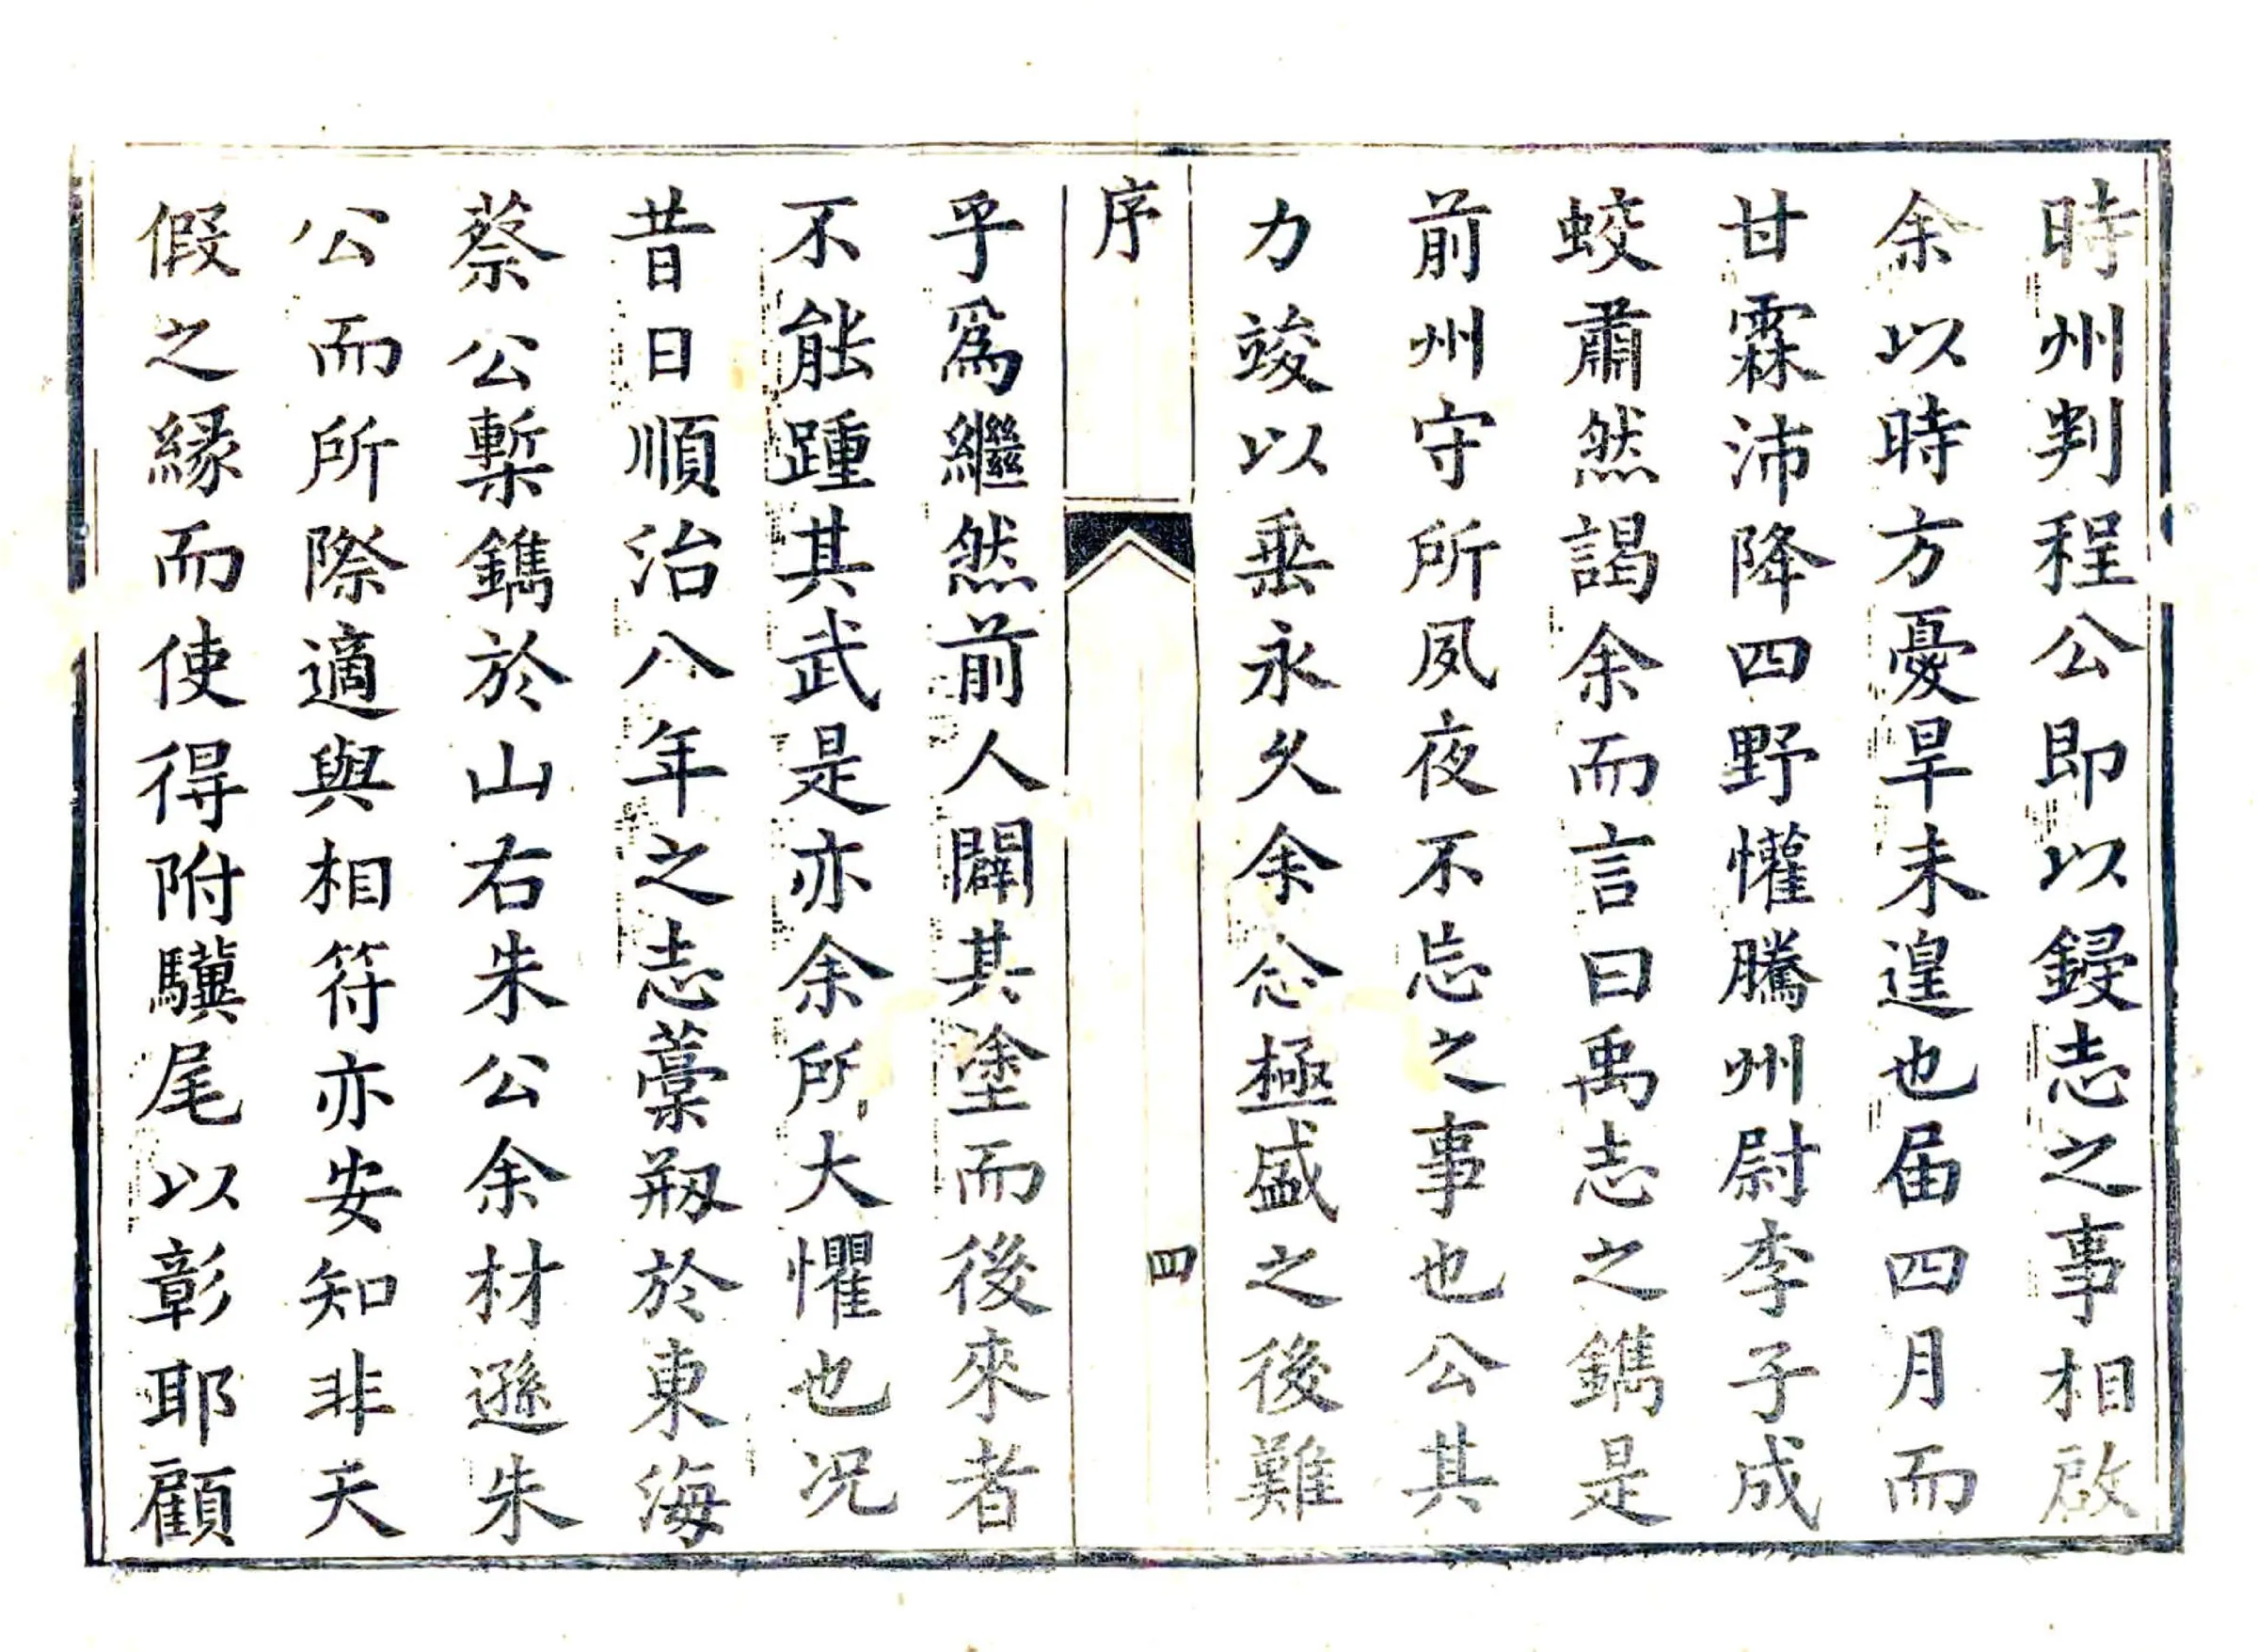 時州判程公即以鋟志之事相啟
余以時方憂旱未遑也届四月而
甘霖沛降四野懽騰州尉李子成
蛟肅然謁余而言曰禹志之鐫是
前州守所夙夜不忘之事也公其
力竣以垂永久余念極盛之後難
序
四
乎爲繼然前人闢其塗而後來者
不能踵其武是亦余所大懼也况
昔日順治八年之志藁剏於東海
蔡公槧鐫於山右朱公余材遜朱
公而所際適與相符亦安知非天
假之緣而使得附驥尾以彰耶顧